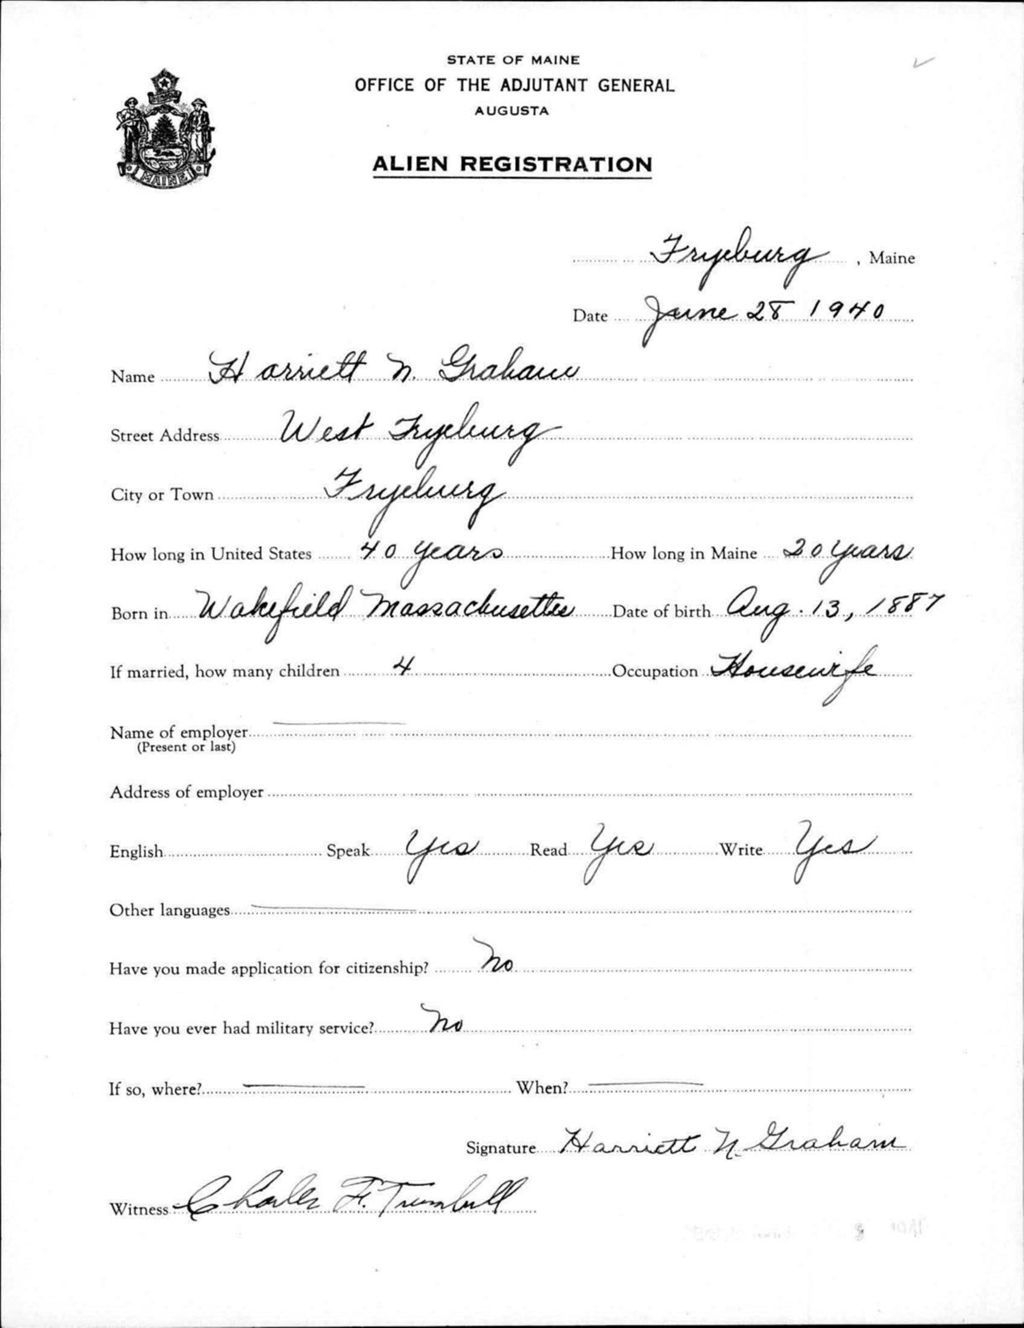 STATE OF MAINE
OFFICE OF THE ADJUTANT GENERAL
AUGUSTA
ALIEN REGISTRATION
MAINE
Fryeburg, Maine
Date June 28 1940
Name Harriett N. Graham
Street Address West Fryeburg
City or Town Fryeburg
How long in United States 40 years How long in Maine 20 years
Born in Wakefield Massachusetts Date of birth Aug. 13, 1887
If married, how many children 4 Occupation Housewife
Name of employer
(Present or last)
Address of employer
English Speak Yes Read Yes Write Yes
Other languages
Have you made application for citizenship? No
Have you ever had military service? No
If so, where? When?
Signature Harriett N. Graham
Witness Charles F. Trumbull